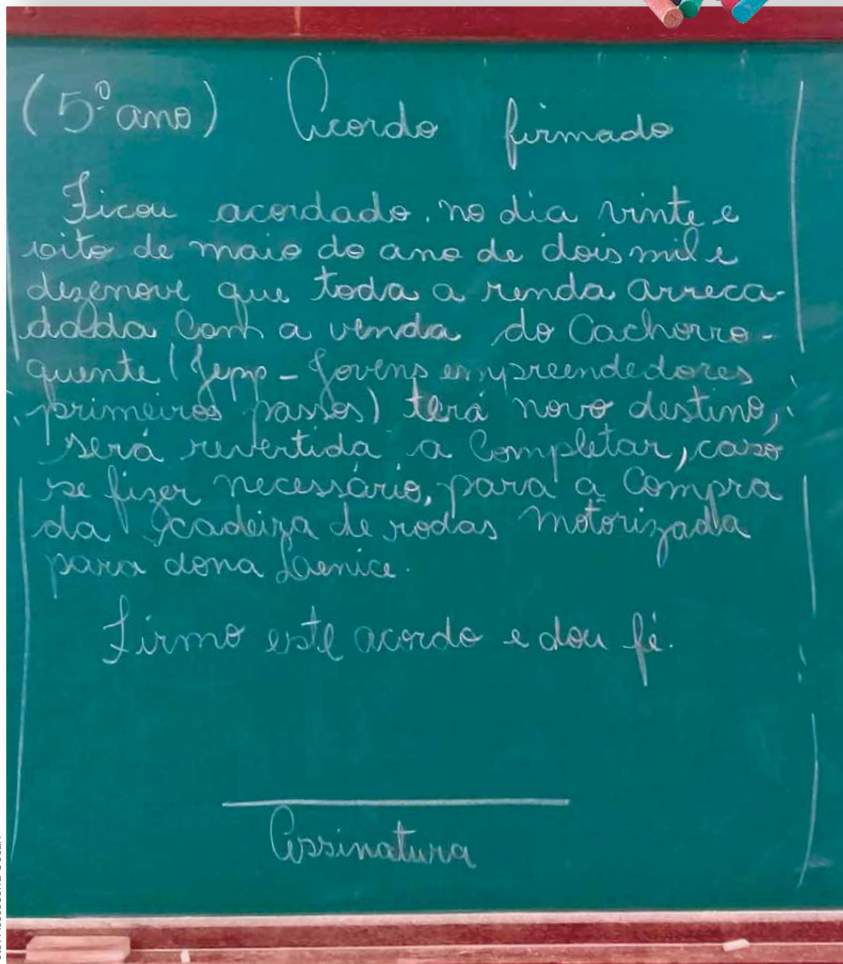 (5º ano) Acordo firmado
Ficou acordado, no dia vinte e
oito de maio do ano de dois mil e
dezenove que toda a renda arreca-
dada com a venda do Cachorro-
quente (Jepp - Jovens empreendedores
primeiros passos) terá novo destino,
será revertida a Completar, caso
se fizer necessário, para a Compra
da cadeira de rodas motorizada
para dona Lenice.
Firmo este acordo e dou fé.
Assinatura